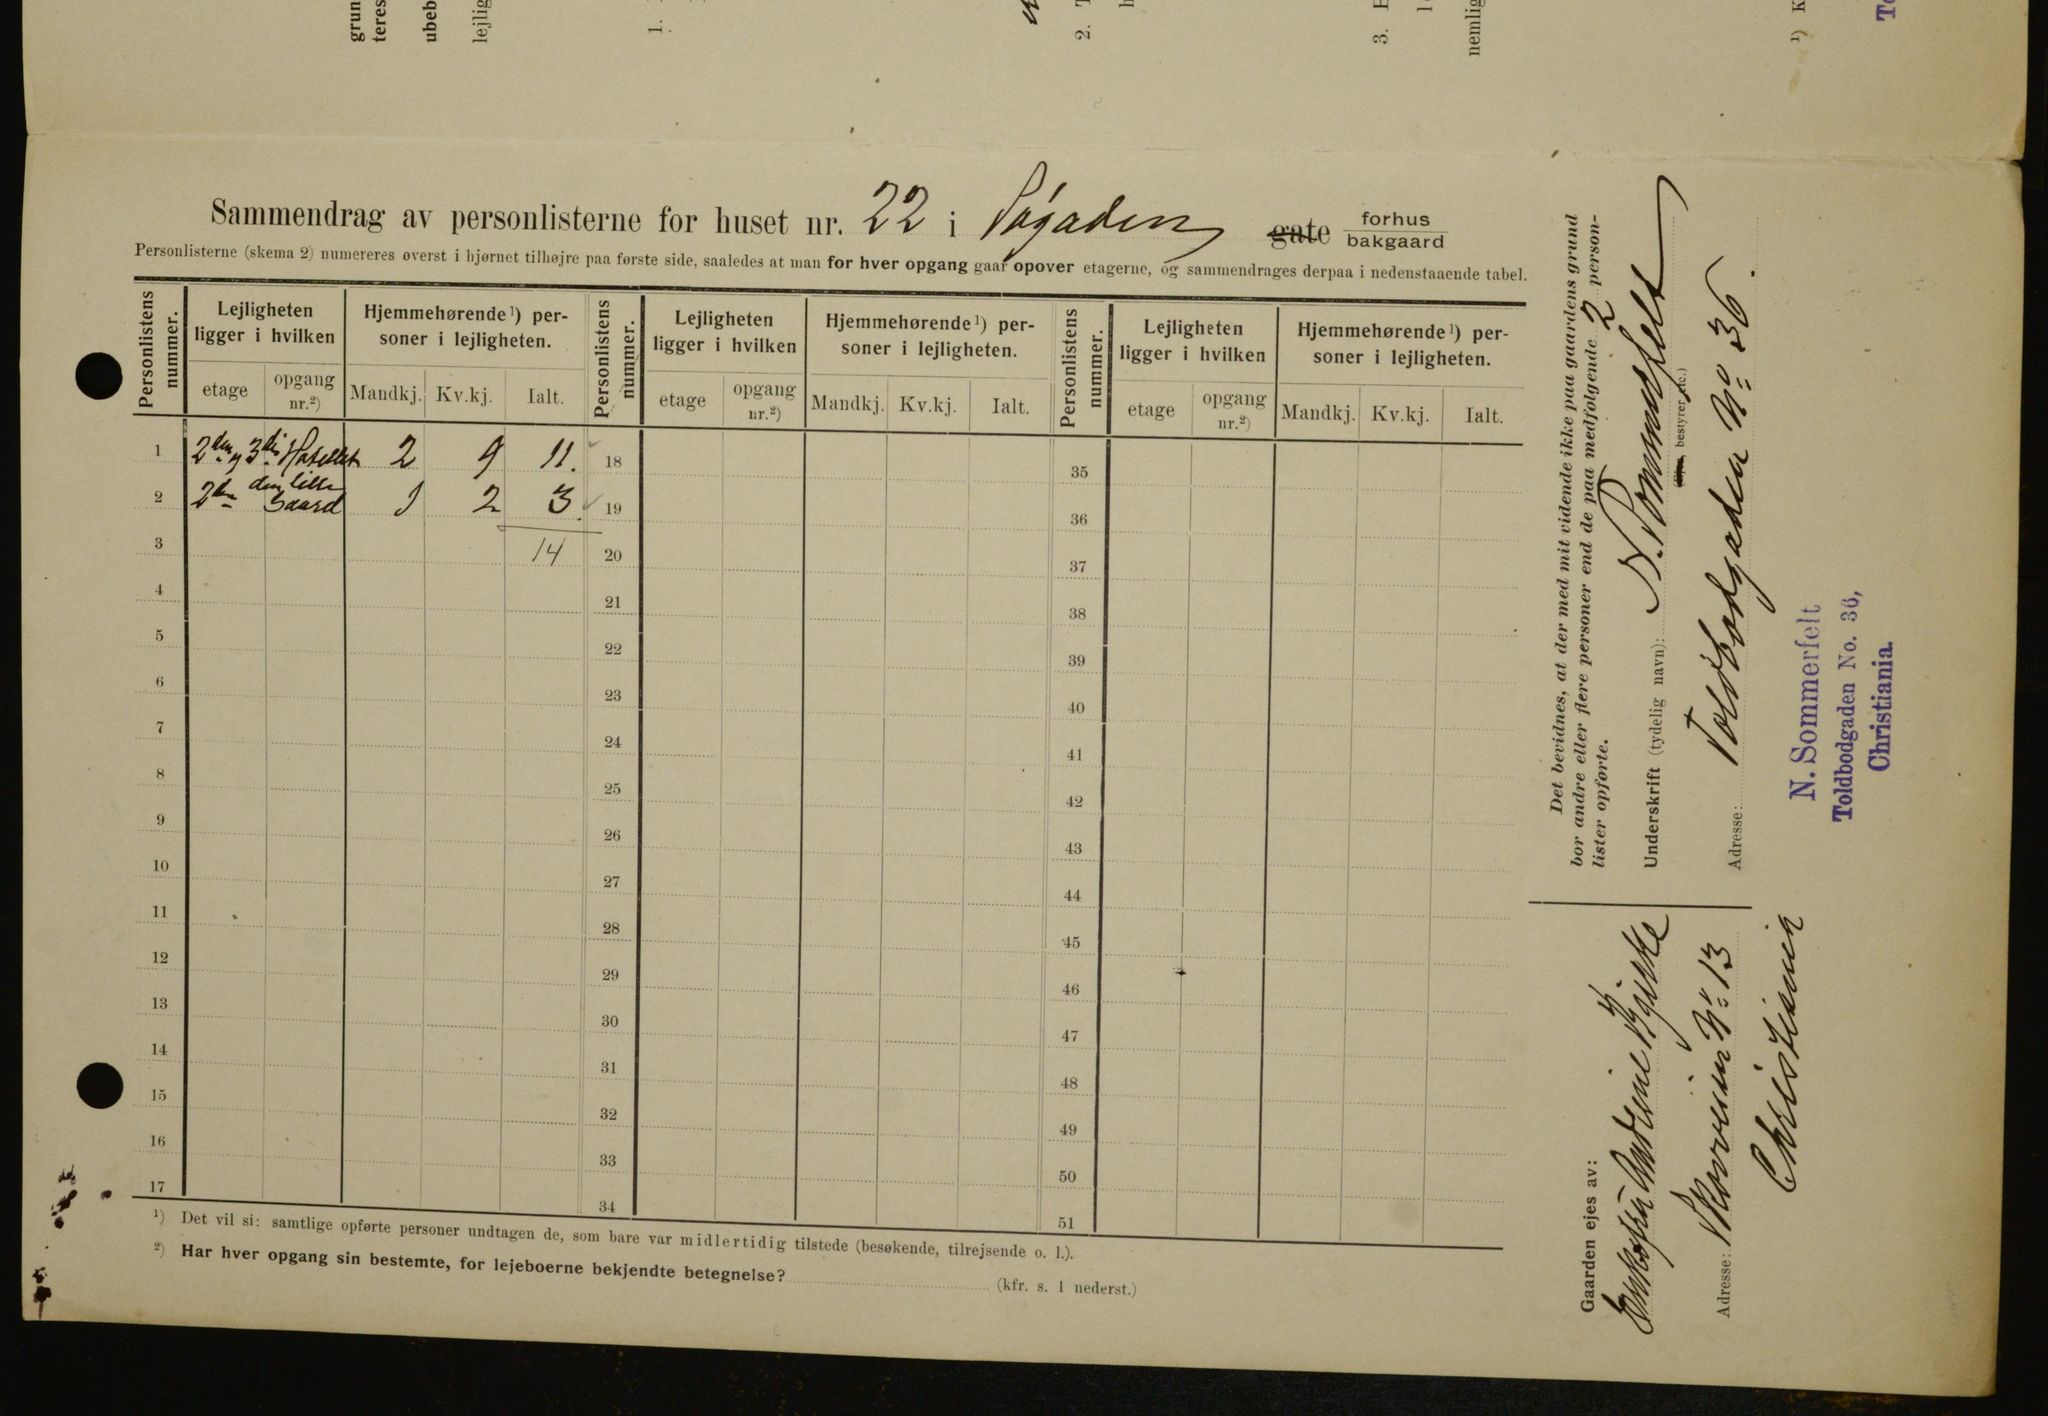 grun
teres
ubeb
lejlig
1.
2. T
h
3. E
nemlig
1) K
To
Sammendrag av personlisterne for huset nr. 22 i Søgaden gate forhus
bakgaard
Personlisterne (skema 2) numereres øverst i hjørnet tilhøjre paa første side, saaledes at man for hver opgang gaar opover etagerne, og sammendrages derpaa i nedenstaaende tabel.
Personlistens nummer. Lejligheten ligger i hvilken Hjemmehørende¹) personer i lejligheten. Personlistens nummer. Lejligheten ligger i hvilken Hjemmehørende¹) personer i lejligheten. Personlistens nummer. Lejligheten ligger i hvilken Hjemmehørende¹) personer i lejligheten.
etage opgang nr.²) Mandkj. Kv.kj. Ialt. etage opgang nr.²) Mandkj. Kv.kj. Ialt. etage opgang nr.²) Mandkj. Kv.kj. Ialt.
1 2den og 3die Hotellet 2 9 11. 18 35
2 2den den lille Gaard 1 2 3. 19 36
3 14 20 37
4 21 38
5 22 39
6 23 40
7 24 41
8 25 42
9 26 43
10 27 44
11 28 45
12 29 46
13 30 47
14 31 48
15 32 49
16 33 50
17 34 51
¹) Det vil si: samtlige opførte personer undtagen de, som bare var midlertidig tilstede (besøkende, tilrejsende o. l.).
²) Har hver opgang sin bestemte, for lejeboerne bekjendte betegnelse? (kfr. s. 1 nederst.)
Det bevidnes, at der med mit vidende ikke paa gaardens grund
bor andre eller flere personer end de paa medfølgende 2 person-
lister opførte.
Underskrift (tydelig navn): N. Sommerfelt
bestyrer etc.)
Adresse: Toldbodgaden No 36.
N. Sommerfelt
Toldbodgaden No. 36,
Christiania.
Gaarden ejes av:
Enkefru
Adresse: Skovveien No 13
Christiania